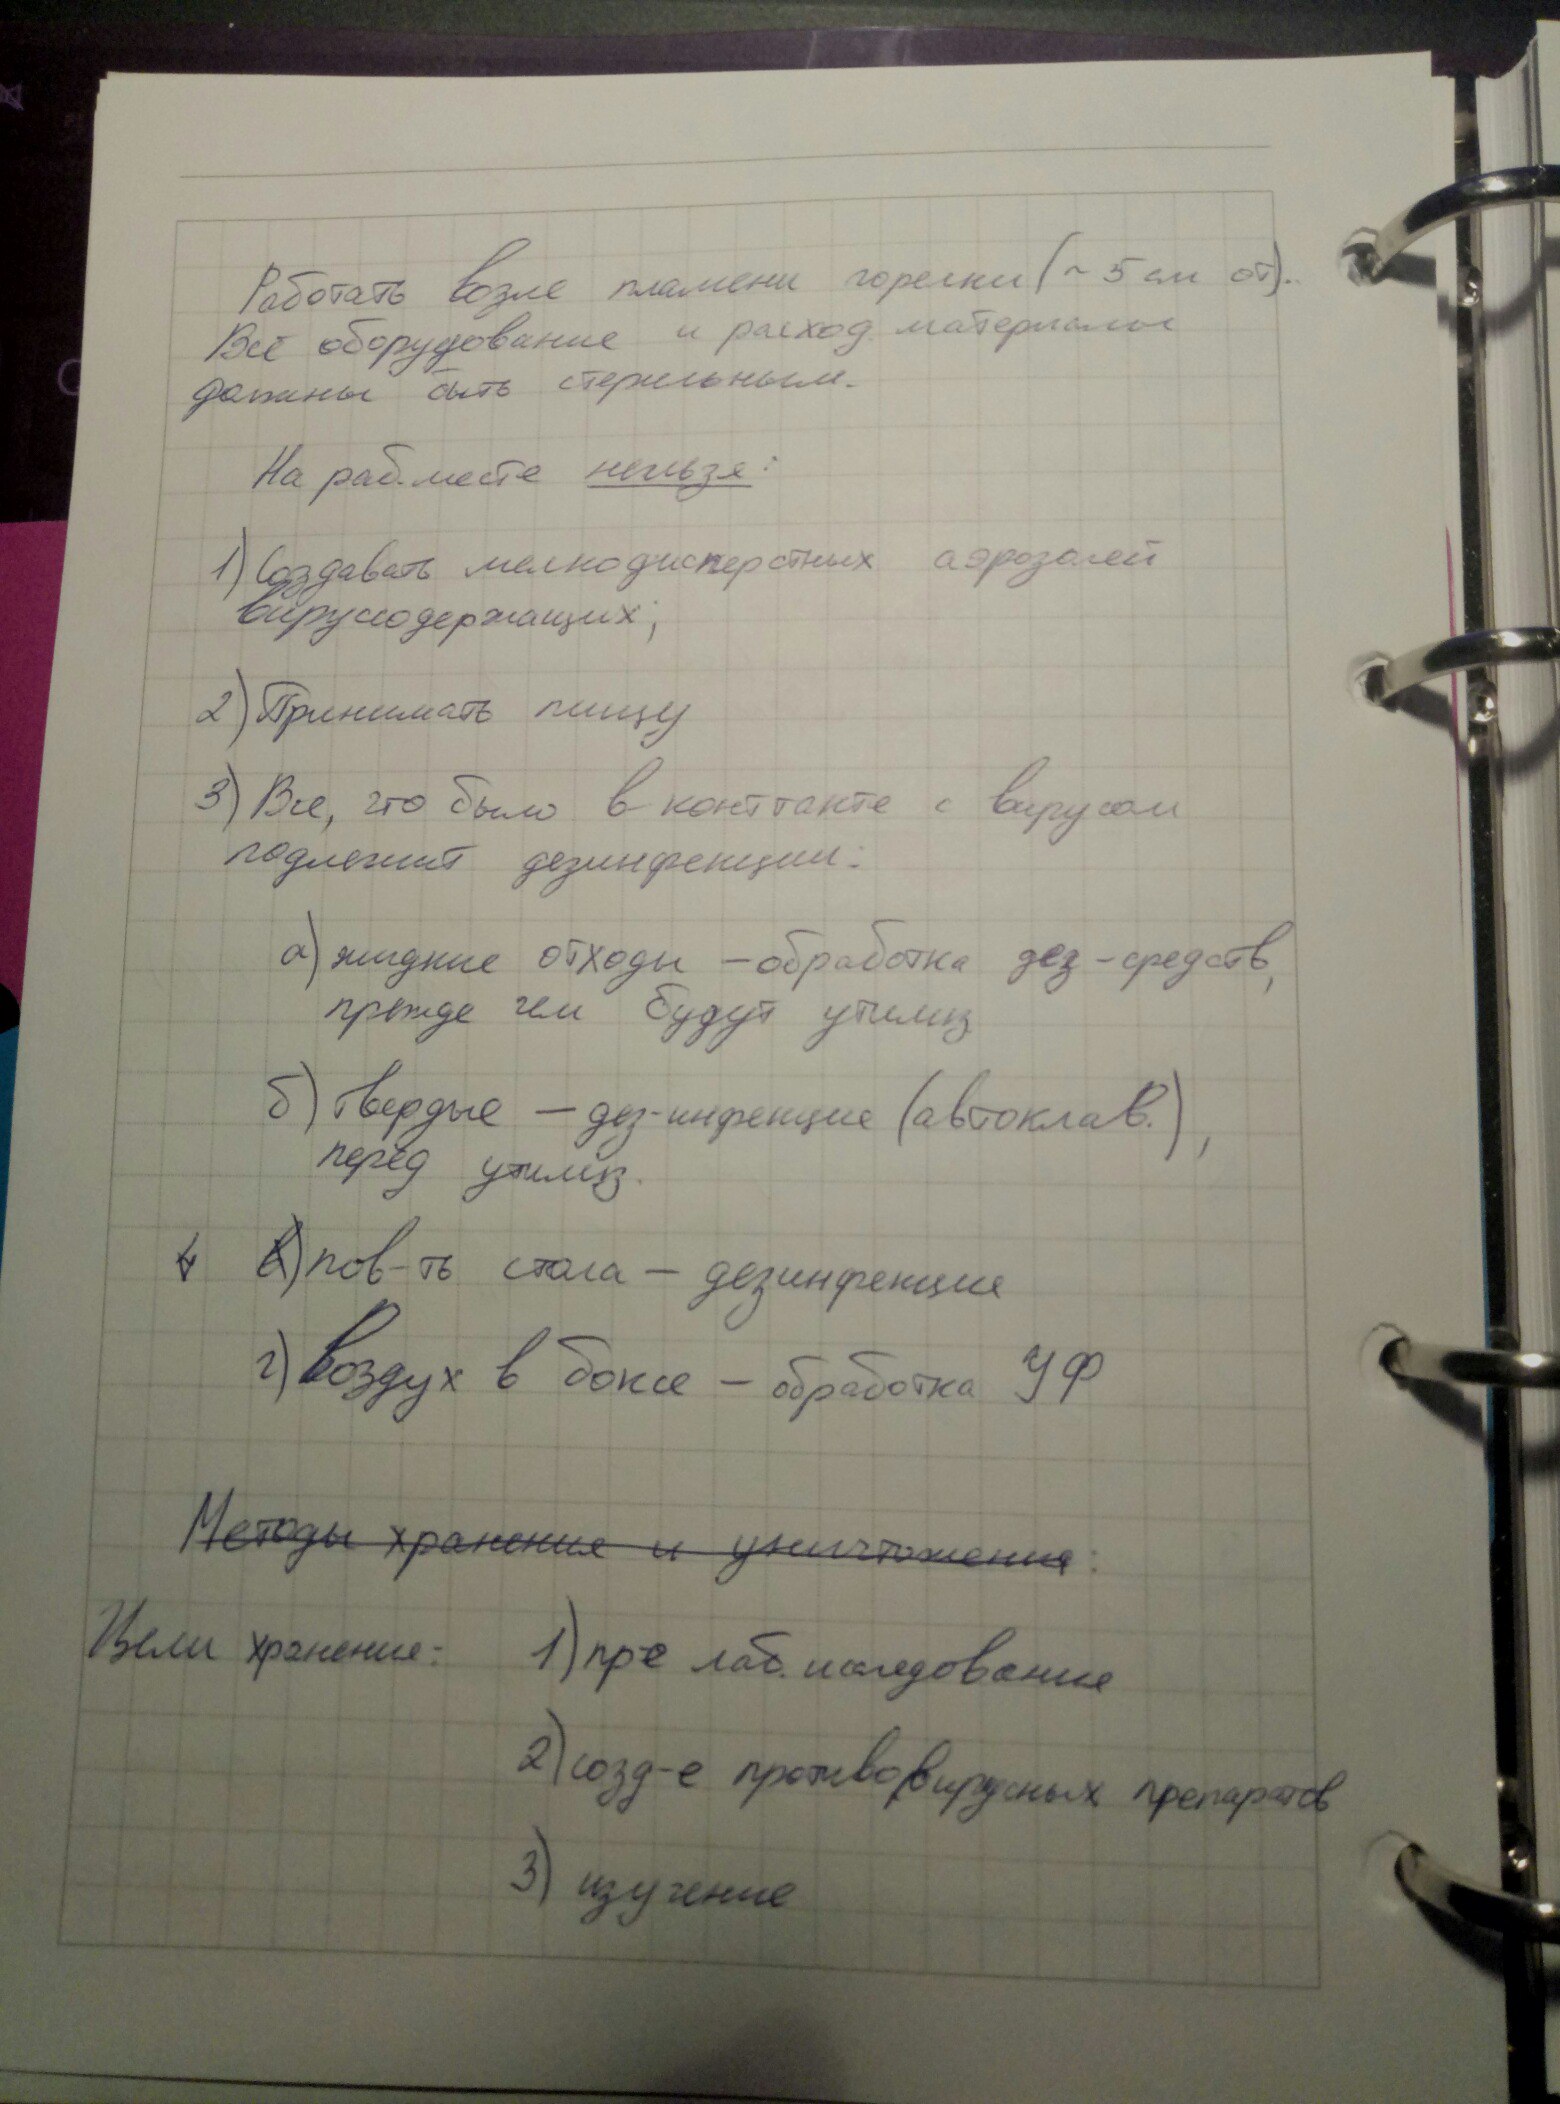 Работать возле пламени горелки (~ 5 см от).
Всё оборудование и расход. материалы
должны быть стерильным.
На раб. месте нельзя:
1) Создавать мелкодисперстных аэрозолей
вирусодержащих;
2) Принимать пищу
3) Все, что было в контакте с вирусом
подлежит дезинфекции:
а) жидкие отходы – обработка дез-средств,
прежде чем будут утилиз
б) твердые – дез-инфекция (автоклав.),
перед утилиз.
в) пов-ть стола – дезинфекция
г) воздух в боксе – обработка УФ
Методы хранения и уничтожения:
Цели хранения: 1) пр-е лаб. исследования
2) созд-е противовирусных препаратов
3) изучение